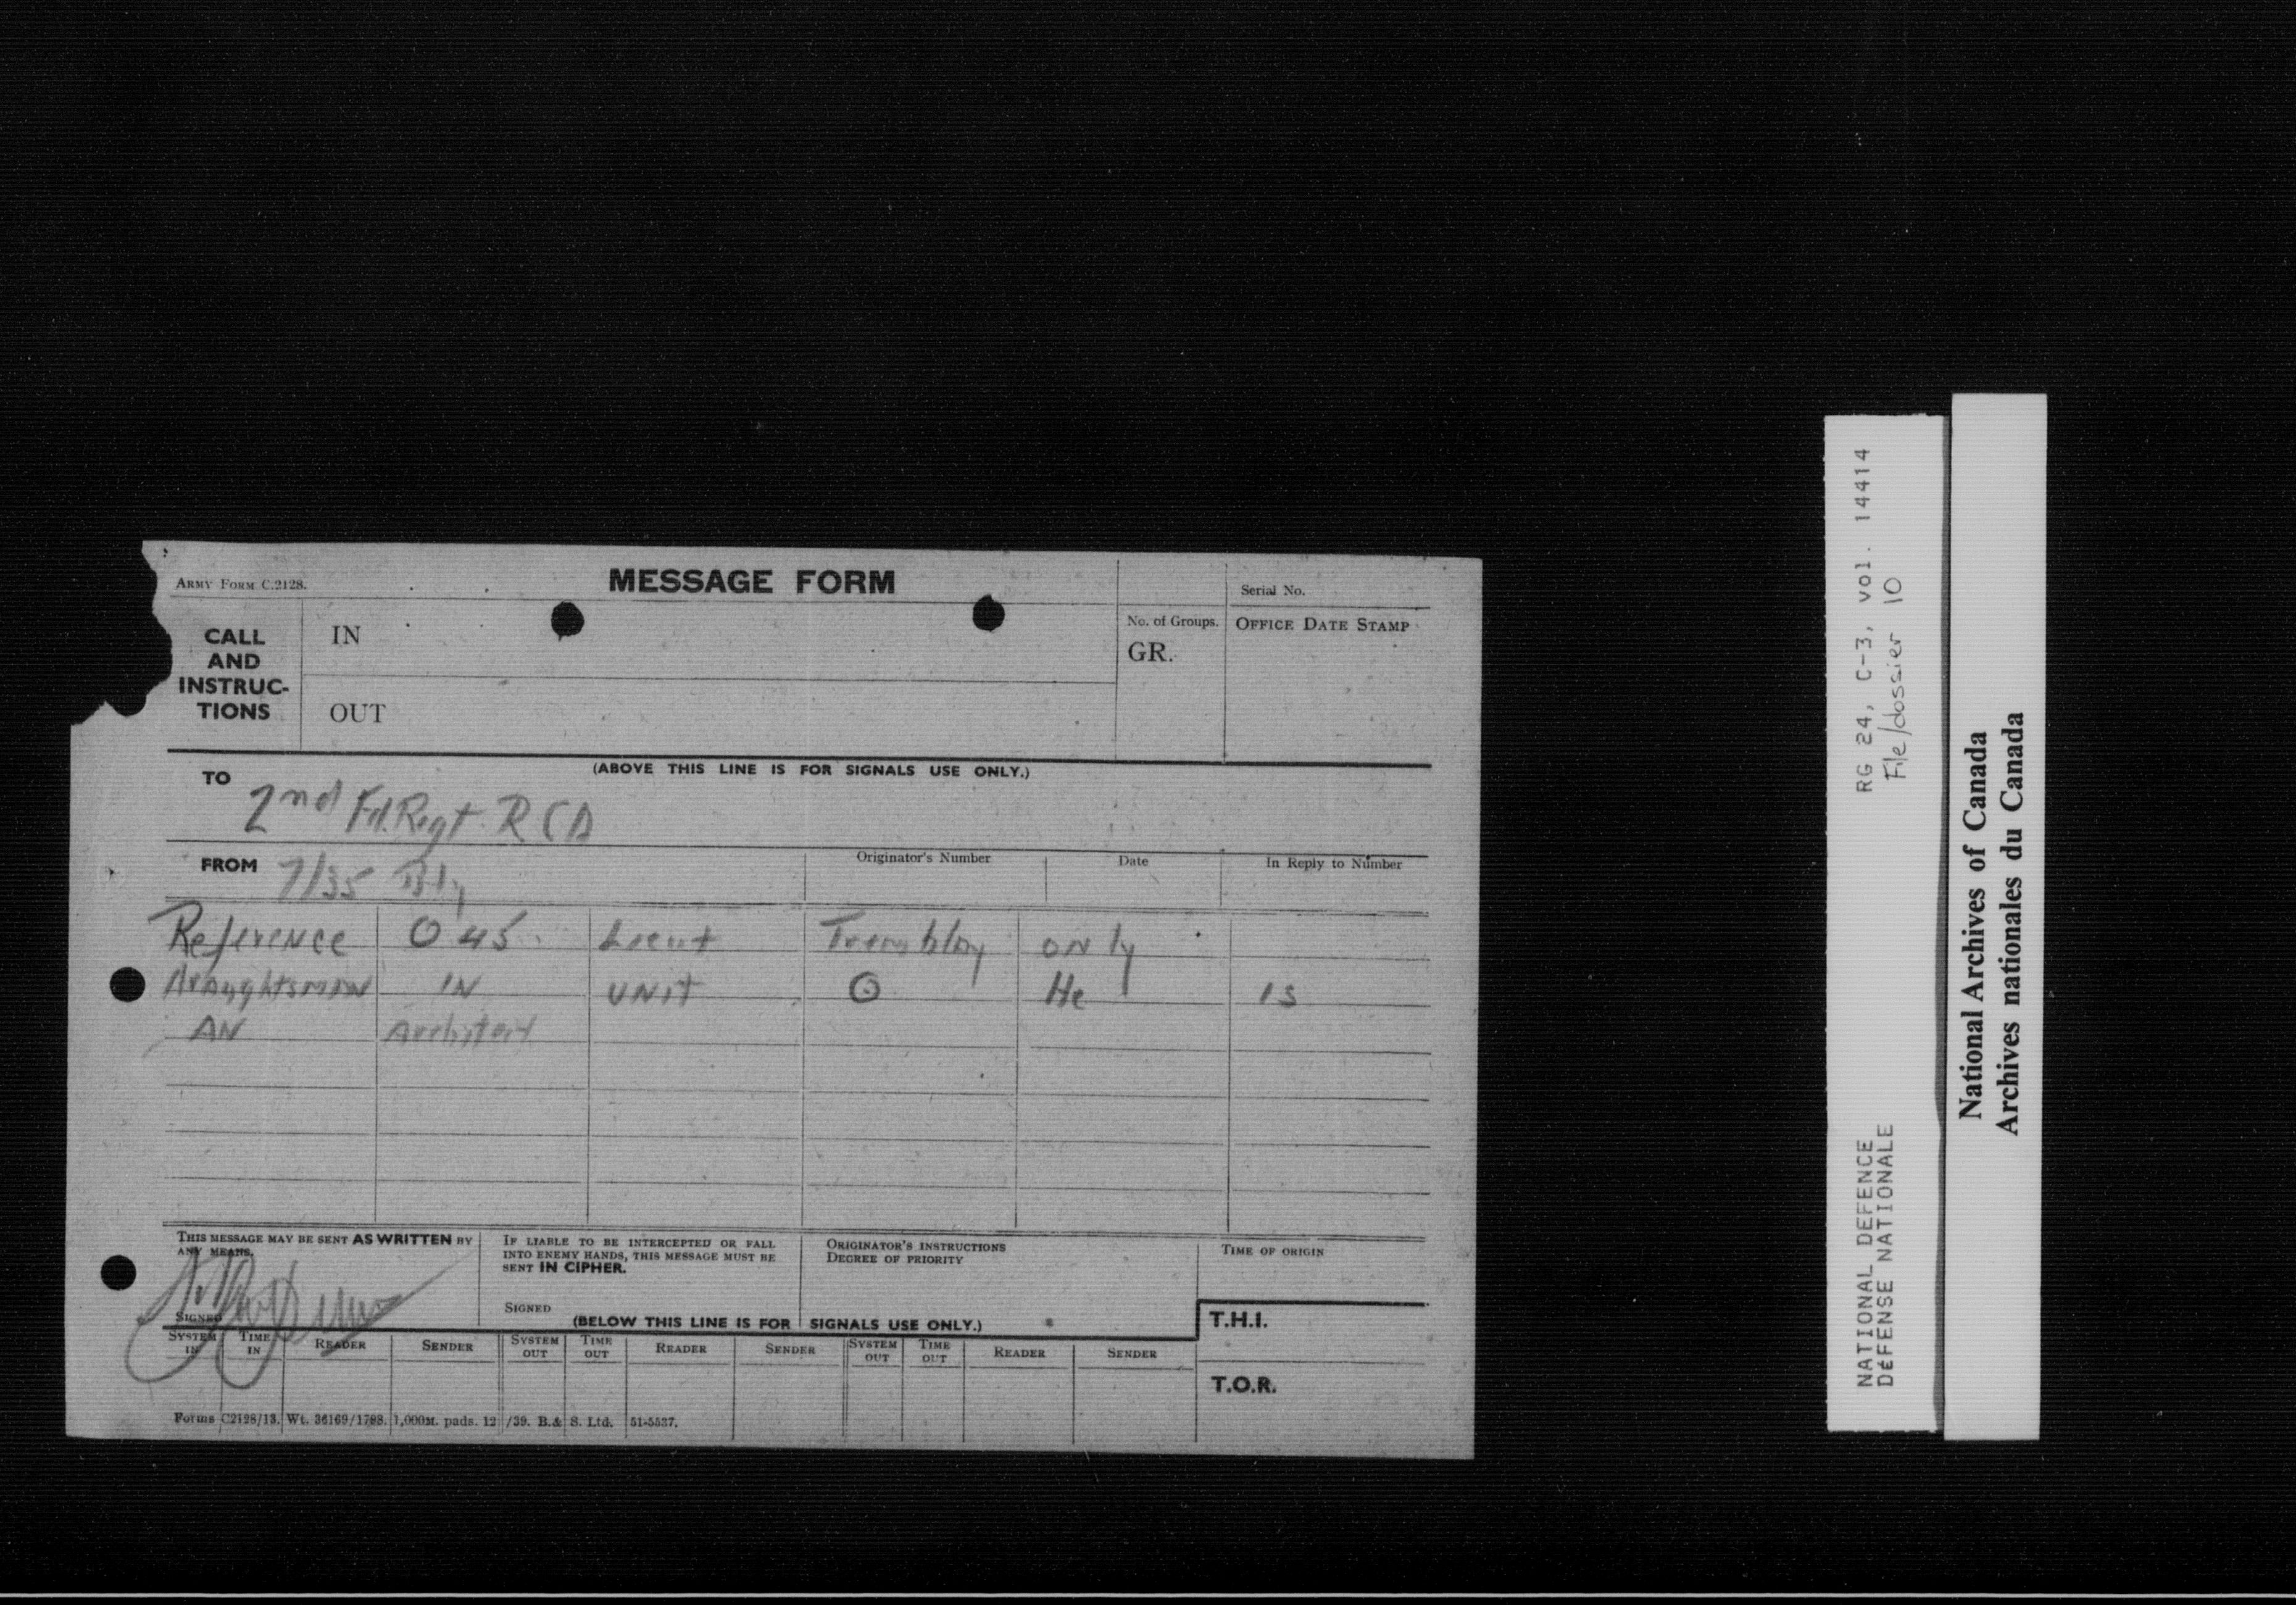 ARMY FORM C.2128.
MESSAGE FORM
Serial No.
CALL AND INSTRUC-TIONS
IN
OUT
No. of Groups.
GR.
OFFICE DATE STAMP
(ABOVE THIS LINE IS FOR SIGNALS USE ONLY.)
TO 2nd Fd. Regt. RCA
FROM 7/35 Bty
Originator's Number
Date
In Reply to Number
Reference O 45 Lieut Tremblay only
draughtsman IN UNIT O He is
AN Architect
THIS MESSAGE MAY BE SENT AS WRITTEN BY
ANY MEANS.
SIGNED
IF LIABLE TO BE INTERCEPTED OR FALL
INTO ENEMY HANDS, THIS MESSAGE MUST BE
SENT IN CIPHER.
SIGNED
ORIGINATOR'S INSTRUCTIONS
DEGREE OF PRIORITY
TIME OF ORIGIN
(BELOW THIS LINE IS FOR SIGNALS USE ONLY.)
T.H.I.
SYSTEM IN TIME IN READER SENDER SYSTEM OUT TIME OUT READER SENDER SYSTEM OUT TIME OUT READER SENDER
T.O.R.
Forms C2128/13. Wt. 36169/1788. 1,000M. pads. 12/39. B.& S. Ltd. 51-5537.
NATIONAL DEFENCE RG 24, C-3, vol. 14414
DÉFENSE NATIONALE File/dossier 10
National Archives of Canada
Archives nationales du Canada